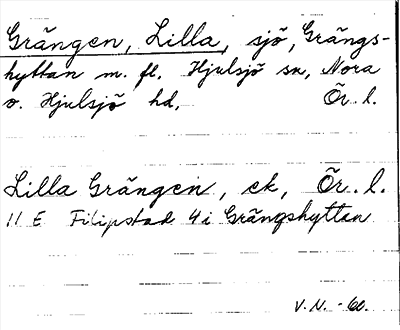 Grängen, Lilla, sjö, Grängs-
hyttan m. fl. Hjulsjö sn, Nora
o. Hjulsjö hd, Ör. l.
Lilla Grängen, ek, Ör. l.
11 E Filipstad 4 i Grängshyttan
V. N. -60.